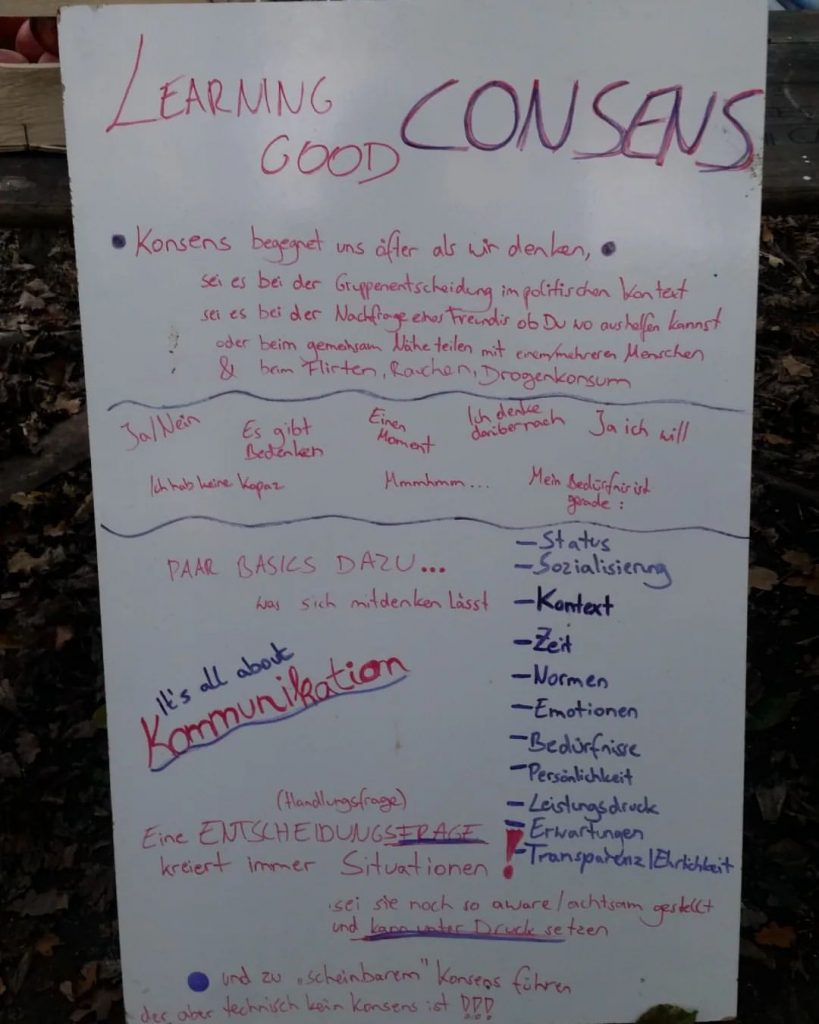 LEARNING
GOOD CONSENS
Konsens begegnet uns öfter als wir denken,
sei es bei der Gruppenentscheidung im politischen Kontext
sei es bei der Nachfrage eines Freundis ob Du wo aushelfen kannst
oder beim gemeinsam Nähe teilen mit einem/mehreren Menschen
& beim Flirten, Rauchen, Drogenkonsum
Ja/Nein
Es gibt
Bedenken
Einen
Moment
Ich denke
darüber nach
Ja ich will
Ich hab keine Kapaz
Mmmhmm...
Mein Bedürfnis ist
gerade:
PAAR BASICS DAZU...
was sich mitdenken lässt
- Status
- Sozialisierung
- Kontext
- Zeit
- Normen
- Emotionen
- Bedürfnisse
- Persönlichkeit
- Leistungsdruck
- Erwartungen
- Transparenz/Ehrlichkeit
It's all about
Kommunikation
(Handlungsfrage)
Eine ENTSCHEIDUNGSFRAGE
kreiert immer Situationen !
sei sie noch so aware/achtsam gestellt
und kann unter Druck setzen
und zu „scheinbarem" Konsens führen
der aber technisch kein Konsens ist !!!